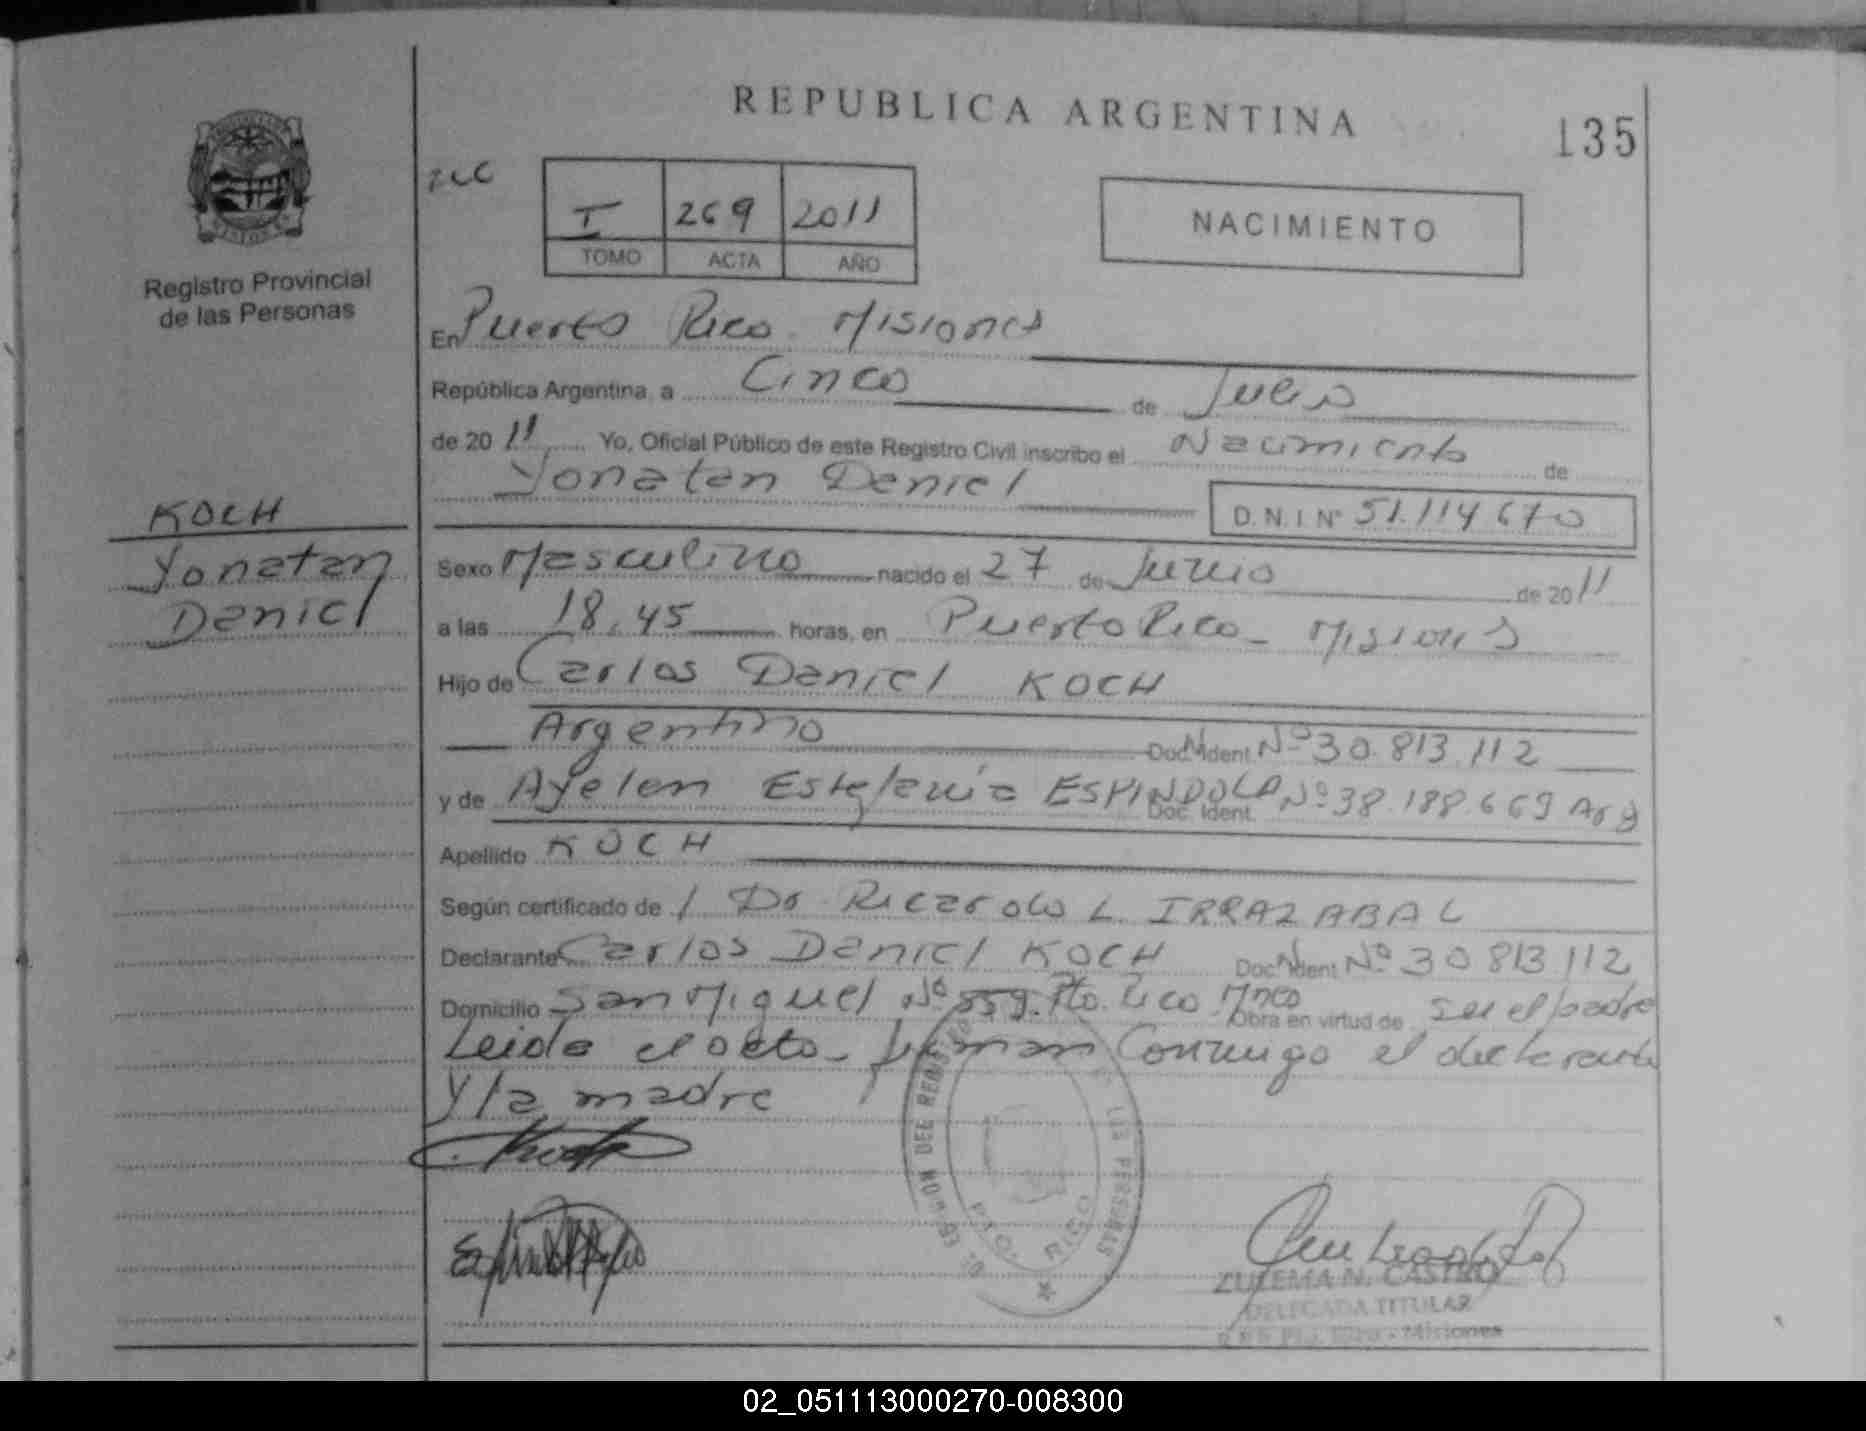 REPUBLICA ARGENTINA
135
Registro Provincial
de las Personas
I 269 2011
TOMO ACTA AÑO
NACIMIENTO
En Puerto Rico Misiones
República Argentina, a Cinco de Julio
de 2011 Yo, Oficial Público de este Registro Civil inscribo el Nacimiento de
Yonatan Daniel
D.N.I Nº 51.114 670
KOCH
Yonatan
Daniel
Sexo Masculino nacido el 27 de Junio de 2011
a las 18,45 horas, en Puerto Rico - Misiones
Hijo de Carlos Daniel KOCH
Argentino Doc. Ident. Nº 30.813.112
y de Ayelen Estefania ESPINDOLA Doc. Ident. Nº 38.188.669 Arg
Apellido KOCH
Según certificado de / Dr Ricardo L. IRRAZABAL
Declarante Carlos Daniel KOCH Doc. Ident Nº 30 813 112
Domicilio San Miguel Nº 559. Pto. Rico Obra en virtud de ser el padre
Leida el acta - firman Conmigo el declarante
y la madre
DEL REGISTRO
DE LAS PERSONAS
PTO. RICO
ZULEMA N. CASTRO
DELEGADA TITULAR
Misiones
02_051113000270-008300